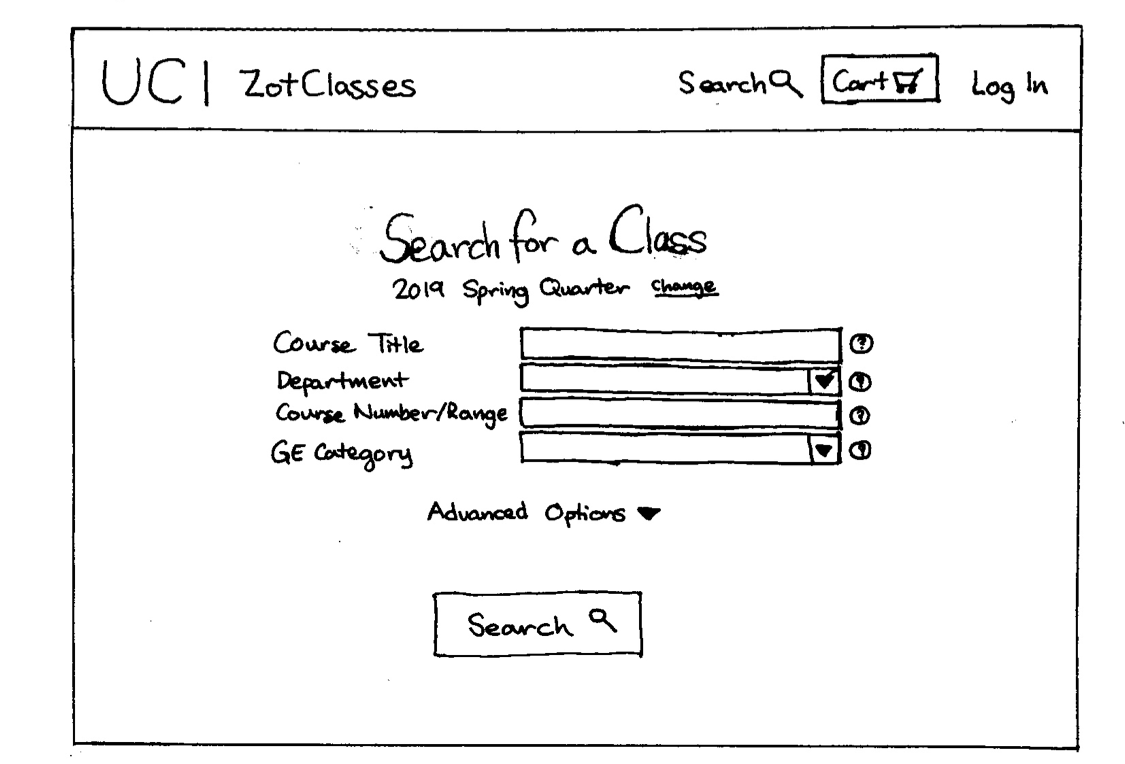 UCI ZotClasses Search Cart Log In
Search for a Class
2019 Spring Quarter change
Course Title ?
Department ?
Course Number/Range ?
GE Category ?
Advanced Options
Search